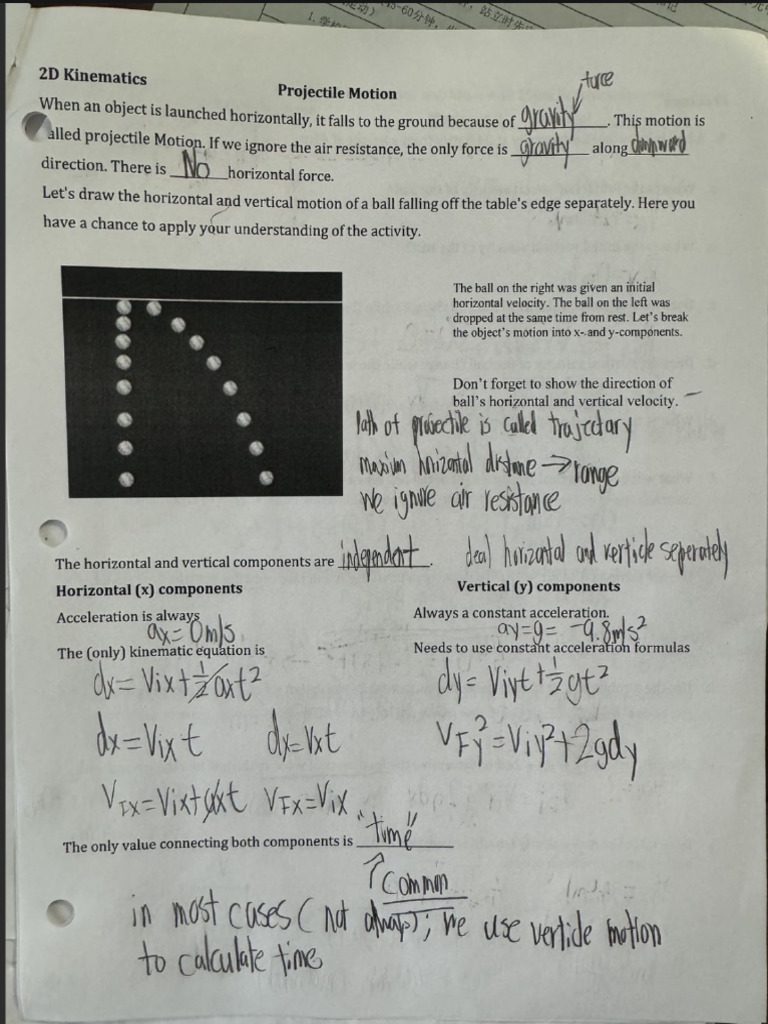 2D Kinematics
Projectile Motion
force
When an object is launched horizontally, it falls to the ground because of gravity. This motion is
alled projectile Motion. If we ignore the air resistance, the only force is gravity along downward
direction. There is No horizontal force.
Let's draw the horizontal and vertical motion of a ball falling off the table's edge separately. Here you
have a chance to apply your understanding of the activity.
The ball on the right was given an initial
horizontal velocity. The ball on the left was
dropped at the same time from rest. Let's break
the object's motion into x- and y-components.
Don't forget to show the direction of
ball's horizontal and vertical velocity.
Path of projectile is called trajectory
maxium horizontal distance → range
we ignore air resistance
The horizontal and vertical components are independent. deal horizontal and verticle seperately
Horizontal (x) components
Acceleration is always
ax = 0m/s
The (only) kinematic equation is
dx = Vixt + 1/2 axt²
dx = Vix t dx = Vxt
VFx = Vix + axt VFx = Vix
Vertical (y) components
Always a constant acceleration.
ay = g = -9.8m/s²
Needs to use constant acceleration formulas
dy = Viyt + 1/2 gt²
VFy² = Viy² + 2gdy
The only value connecting both components is "time"
↑ Common
in most cases (not always); we use verticle motion
to calculate time